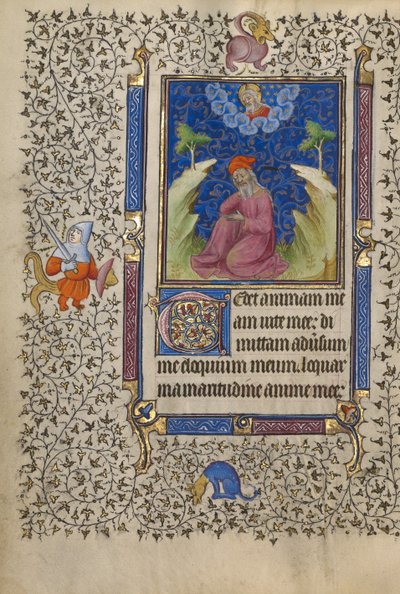 Tedet animam me
am uite mee: di
mittam adu̾sum
me eloquium meum. loquar
in amaritudine anime mee.